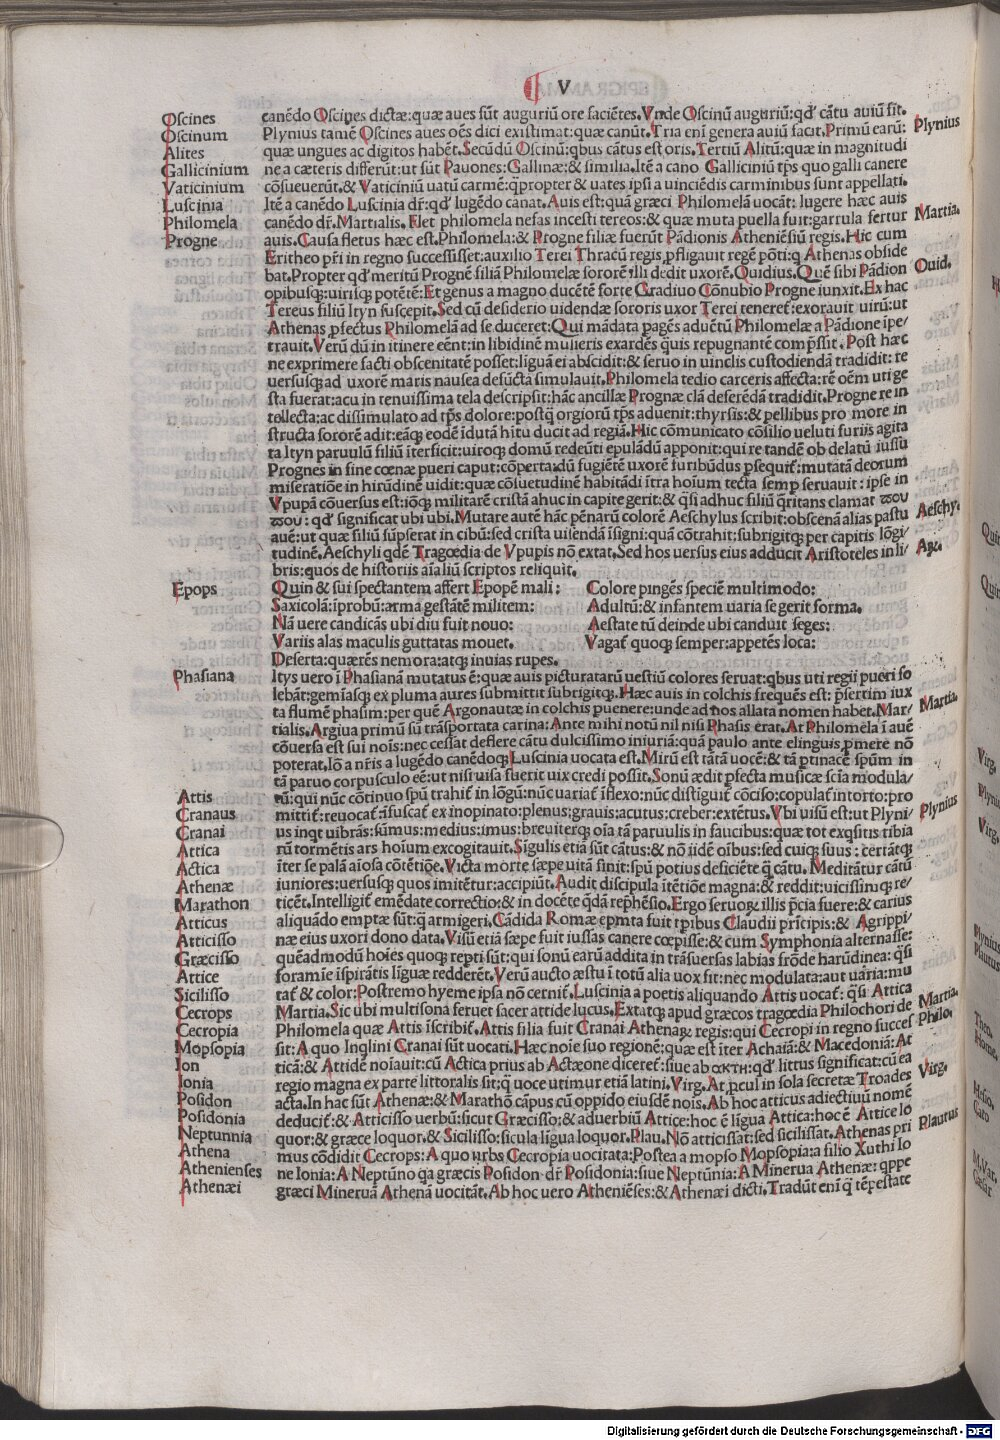 V
Oscines canẽdo Oscines dictæ: quæ aues sũt auguriũ ore faciẽtes. Vnde Oscinũ auguriũ: qď cãtu auiũ fit.
Oscinum Plynius tamẽ Oscines aues oẽs dici existimat: quæ canũt. Tria eni genera auiũ facit. Primũ earũ: Plynius
Alites quæ ungues ac digitos habẽt. Secũdũ Oscinũ: qbus cãtus est oris. Tertiũ Alitũ: quæ in magnitudi
Gallicinium ne a cæteris differũt: ut sũt Pauones: Gallinæ: & similia. Itẽ a cano Galliciniũ tp̃s quo galli canere
Vaticinium cõsueuerũt. & Vaticiniũ uatũ carmẽ: q̃propter & uates ipsi a uinciẽdis carminibus sunt appellati.
Luscinia Itẽ a canẽdo Luscinia dr̃: qď lugẽdo canat. Auis est: quã græci Philomelã uocãt: lugere hæc auis
Philomela canẽdo dr̃. Martialis. Flet philomela nefas incesti tereos: & quæ muta puella fuit: garrula fertur Martia.
Progne auis. Causa fletus hæc est. Philomela: & Progne filiæ fuerũt Pãdionis Atheniẽsiũ regis. Hic cum
Eritheo pr̃i in regno successisset: auxilio Terei Thracũ regis ꝓfligauit regẽ põti: q Athenas obside
bat. Propter qď meritũ Prognẽ filiã Philomelæ sororẽ illi dedit uxorẽ. Ouidius. Quẽ sibi Pãdion Ouid.
opibusq;: uirisq; potẽtẽ: Et genus a magno ducẽtẽ forte Gradiuo Cõnubio Progne iunxit. Ex hac
Tereus filiũ Ityn suscepit. Sed cũ desiderio uidendæ sororis uxor Terei teneret̃: exorauit uirũ: ut
Athenas ꝓfectus Philomelã ad se duceret: Qui mãdata pagẽs aduẽtũ Philomelæ a Pãdione ipe/
trauit. Verũ dũ in itinere eẽnt: in libidinẽ mulieris exardẽs q̃uis repugnantẽ comp̃ssit. Post hæc
ne exprimere facti obscenitatẽ posset: liguã ei abscidit: & seruo in uinclis custodiendã tradidit: re
uersusq; ad uxorẽ maris nausea defũcta simulauit. Philomela tedio carceris affecta: rẽ oẽm uti ge
sta fuerat: acu in tenuissima tela descripsit: hãc ancillæ Prognæ clã deferẽdã tradidit. Progne re in
tellecta: ac dissimulato ad tp̃s dolore: postq̃ orgiorũ tp̃s aduenit: thyrsis: & pellibus pro more in
structa sororẽ adit: eãq; eodẽ idutã hitu ducit ad regiã. Hic cõmunicato cõsilio ueluti furiis agita
ta Ityn paruulũ filiũ iterficit: uiroq; domũ redeũti epulãdũ apponit: qui re tandẽ ob delatũ iussu
Prognes in fine cœnæ pueri caput: cõperta: dũ fugiẽtẽ uxorẽ furibũdus ꝓsequit̃: mutatã deorum
miseratiõe in hirũdinẽ uidit: quæ cõsuetudinẽ habitãdi itra hoium tecta semꝑ seruauit: ipse in
Vpupã cõuersus est: iõq; militarẽ cristã ahuc in capite gerit: & q̃si adhuc filiũ q̃ritans clamat ϖου
ϖου: qď significat ubi ubi. Mutare autẽ hãc pẽnarũ colorẽ Aeschylus scribit: obscenã alias pastu Aeschy.
auẽ: ut quæ filiũ supserat in cibũ: sed crista uisendã isigni: quã cõtrahit: subrigitq; per capitis lõgi/
tudinẽ. Aeschyli qdẽ Tragœdia de Vpupis nõ extat. Sed hos uersus eius adducit Aristoteles in li/ Are.
bris: quos de historiis aialiũ scriptos reliquit.
Epops Quin & sui spectantem affert Epopẽ mali: Colore pingẽs speciẽ multimodo:
Saxicolã: iprobũ: arma gestãtẽ militem: Adultũ: & infantem uaria se gerit forma.
Nã uere candicãs ubi diu fuit nouo: Aestate tũ deinde ubi canduit seges:
Variis alas maculis guttatas mouet. Vagat̃ quoq; semper: appetẽs loca:
Deserta: quærẽs nemora: atq; inuias rupes.
Phasiana Itys uero i Phasianã mutatus ẽ: quæ auis picturatarũ uestiũ colores seruat: qbus uti regii pueri so
lebãt: gemiasq; ex pluma aures submittit subrigitq;. Hæc auis in colchis frequẽs est: p̃sertim iux
ta flumẽ phasim: per quẽ Argonautæ in colchis puenere: unde ad nos allata nomen habet. Mar/ Martia.
tialis. Argiua primũ sũ trãsportata carina: Ante mihi notũ nil nisi Phasis erat. At Philomela i auẽ
cõuersa est sui nois: nec cessat deflere cãtu dulcissimo iniuriã: quã paulo ante elinguis ꝓmere nõ
poterat. Iõ a nr̃is a lugẽdo canẽdoq; Luscinia uocata est. Mirũ est tãtã uocẽ: & tã ptinacẽ spũm in
tã paruo corpusculo eẽ: ut nisi uisa fuerit uix credi possit. Sonũ ædit ꝓfecta musicæ scia modula/
Attis tũ: qui nũc cõtinuo spũ trahit̃ in lõgũ: nũc uariat̃ iflexo: nũc distiguit̃ cõciso: copulat̃ intorto: pro
Cranaus mittit̃: reuocat̃: ifuscat̃ ex inopinato: plenus: grauis: acutus: creber: extẽtus. Vbi uisũ est: ut Plyni/ Plynius
Cranai us inqt uibrãs: sũmus: medius: imus: breuiterq; oia tã paruulis in faucibus: quæ tot exqsitis tibia
Attica rũ tormẽtis ars hoium excogitauit. Sigulis etiã sũt cãtus: & nõ iidẽ oibus: sed cuiq; suus: certãtq;
Actica iter se palã aiosa cõtẽtiõe. Victa morte sæpe uitã finit: spũ potius deficiẽte q̃ cãtu. Meditãtur cãtũ
Athenæ iuniores: uersusq; quos imitẽtur: accipiũt. Audit discipula itẽtiõe magna: & reddit: uicissimq; re/
Marathon ticẽt. Intelligit̃ emẽdate correctio: & in docẽte qdã rep̃hẽsio. Ergo seruoꝝ illis p̃cia fuere: & carius
Atticus aliquãdo emptæ sũt: q̃ armigeri. Cãdida Romæ epmta fuit tp̃ibus Claudii prĩcipis: & Agrippi/
Atticisso næ eius uxori dono data. Visũ etiã sæpe fuit iussas canere cœpisse: & cum Symphonia alternasse:
Græcisso quẽadmodũ hoies quoq; repti sũt: qui sonũ earũ addita in trãsuersas labias frõde harũdinea: q̃si
Attice foramĩe ispirãtis liguæ redderẽt. Verũ aucto æstu i totũ alia uox fit: nec modulata: aut uaria: mu
Sicilisso tat̃ & color: Postremo hyeme ipsa nõ cernit̃. Luscinia a poetis aliquando Attis uocat̃: q̃si Attica
Cecrops Martia. Sic ubi multisona feruet sacer attide lucus. Extatq; apud græcos tragœdia Philochori de Martia.
Cecropia Philomela quæ Attis iscribit̃. Attis filia fuit Cranai Athenaꝝ regis: qui Cecropi in regno succes Philo.
Mopsopia sit: A quo Inqlini Cranai sũt uocati. Hæc noie suo regionẽ: quæ est iter Achaiã: & Macedoniã: At
Ion ticã: & Attidẽ noiauit: cũ Actica prius ab Actæone diceret̃: siue ab ακτη: qď littus significat: cũ ea
Ionia regio magna ex parte littoralis sit: q̃ uoce utimur etiã latini. Virg. At ꝓcul in sola secretæ Troades Virg.
Posidon acta. In hac sũt Athenæ: & Marathõ cãpus cũ oppido eiusdẽ nois. Ab hoc atticus adiectiuũ nomẽ
Posidonia deducit̃: & Atticisso uerbũ: sicut Græcisso: & aduerbiũ Attice: hoc ẽ ligua Attica: hoc ẽ Attice lo
Neptunnia quor: & græce loquor. & Sicilisso: sicula ligua loquor. Plau. Nõ atticissat: sed sicilissat. Athenas pri Plautus
Athena mus cõdidit Cecrops: A quo urbs Cecropia uocitata: Postea a mopso Mopsopia: a filio Xuthi Io
Athenienses ne Ionia: A Neptũno q̃a græcis Posidon dr̃ Posidonia: siue Neptũnia: A Minerua Athenæ: qppe
Athenæi græci Mineruã Athenã uocitãt. Ab hoc uero Atheniẽses: & Athenæi dicti. Tradũt eni q̃ tẽpestate
Digitalisierung gefördert durch die Deutsche Forschungsgemeinschaft - DFG